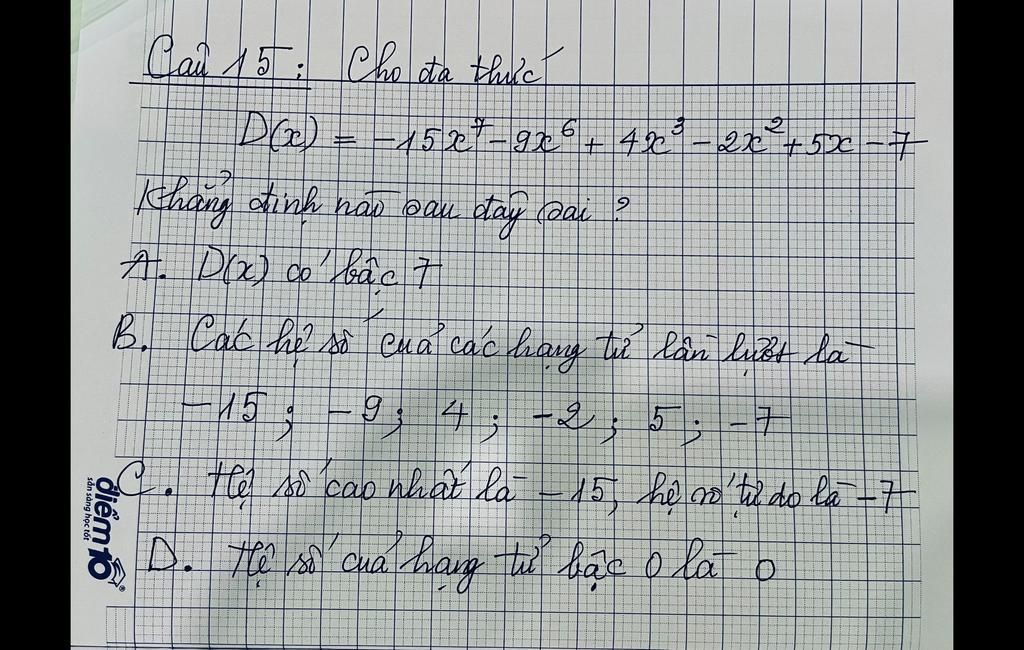 Câu 15: Cho đa thức
D(x) = -15x⁷ - 9x⁶ + 4x³ - 2x² + 5x - 7
Khẳng định nào sau đây sai ?
A. D(x) có bậc 7
B. Các hệ số của các hạng tử lần lượt là
-15 ; -9 ; 4 ; -2 ; 5 ; -7
C. Hệ số cao nhất là -15, hệ số tự do là -7
D. Hệ số của hạng tử bậc 0 là 0
điểm 10
sẵn sàng học tốt